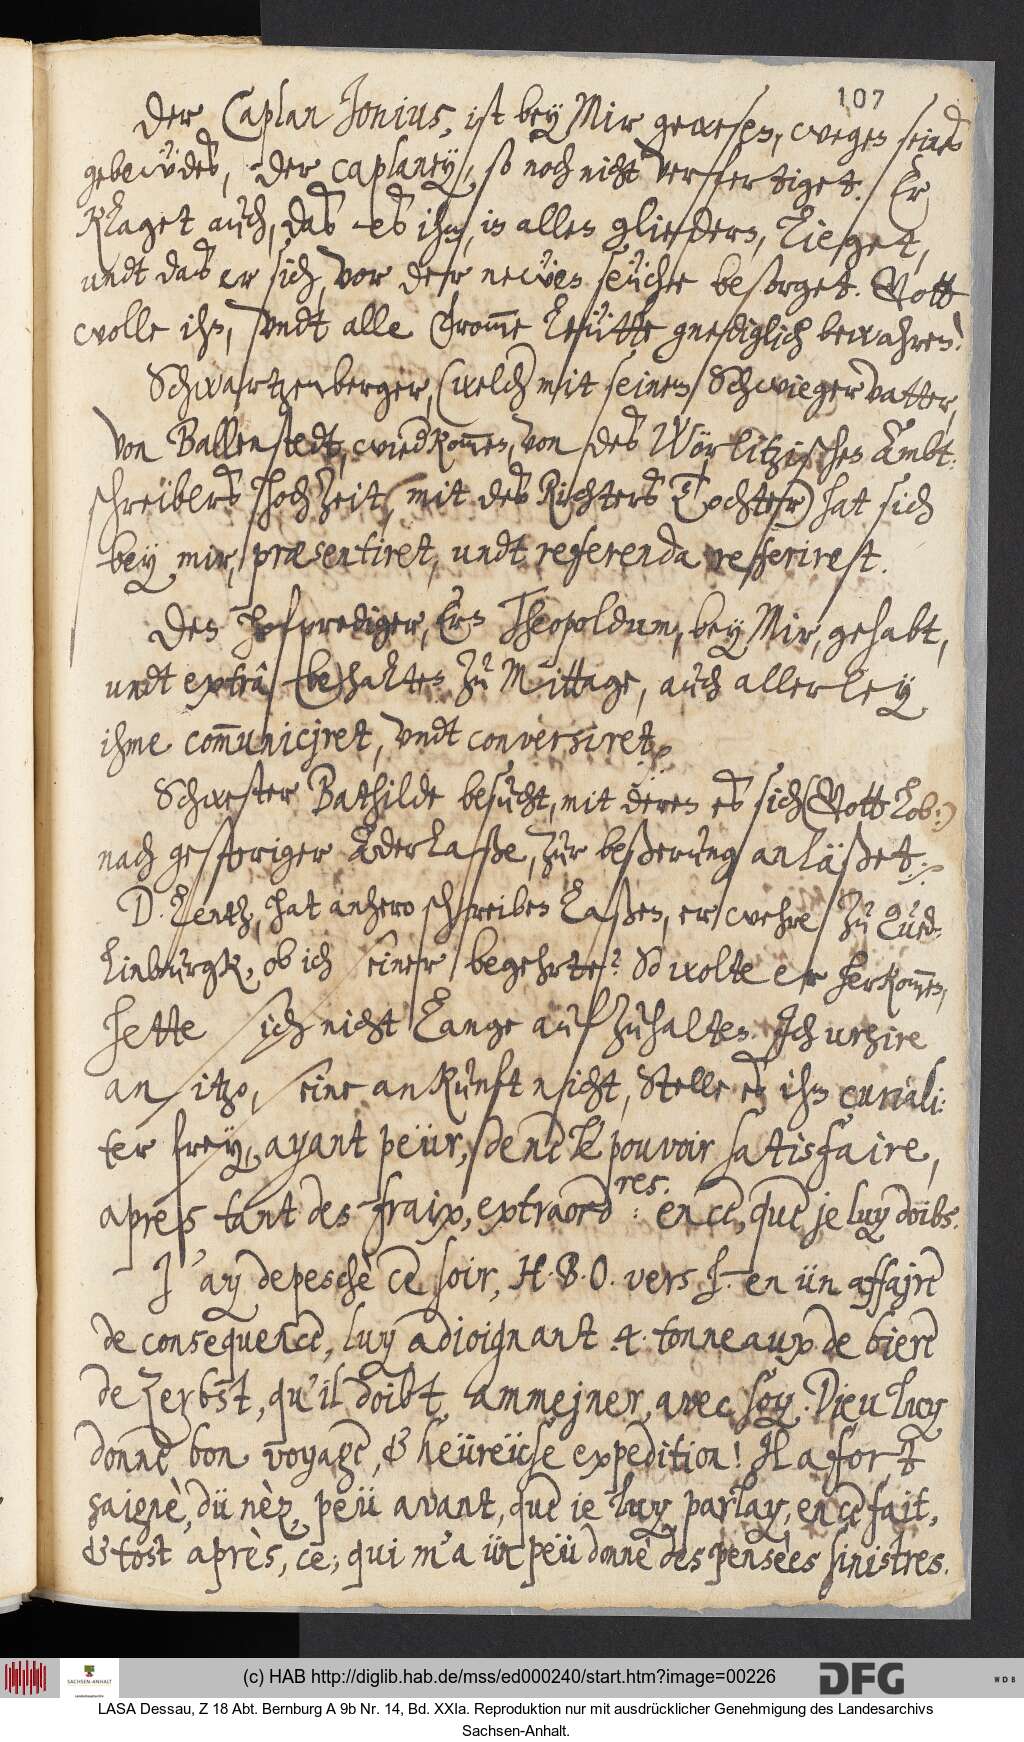 107
Der Caplan Jonius, ist bey Mir gewesen, wegen seines
gebewdes, der caplaney, so noch nicht verfertiget. Er
klaget auch, das es ihm, in allen gliedern, lieget,
undt das er sich, vor der newen seüche besorget. Gott
wolle ihn, vndt alle fromme leütte gnediglich bewahren.
Schwartzenberger, (welcher mit seinem Schwiegervatter,
von Ballenstedt, wiedkommen, von des Wörlitzischen Ambt:
schreibers Hochzeit, mit des Richters Tochter) hat sich
bey mir, præsentiret, undt referenda referiret.
Den Hofprediger, Ern Theopoldum, bey Mir, gehabt,
undt extra (be)halten zu Mittage, auch allerley
ihme communiciret, vndt conversiret.
Schwester Bathilde besucht, mit deren es sich (Gott lob:)
nach gestriger Aderlaße, zur beßerung anläßet.
D. Lentz, hat anhero schreiben laßen, er wehre zu Qued-
linburgk, ob ich seiner begehrte? So wolte er herkommen,
hette sich nicht lange aufzuhalten. Ich urgire
an itzo, seine ankunft nicht, Stelle es ihm curiali:
ter frey, ayant peür, de ne le pouvoir satisfaire,
apres tant des fraix, extraord:res. en ce, que je luy doibs.
J'ay depeschè ce soir, H. B. O. vers H. en ün affajre
de consequence, luy adioignant 4. tonneaux de biere
de Zerbst, qu'il doibt, ammejner avec soy. Dieu luy
donne bon voyage, & heüreüse expedition! Il a fort
saignè, dü nèz, peü avant, que ie luy parlay, en ce fait,
& tost après, ce, qui m'a ün peü donnè des pensèes sinistres.
(c) HAB http://diglib.hab.de/mss/ed000240/start.htm?image=00226
SACHSEN-ANHALT
DFG
WDB
LASA Dessau, Z 18 Abt. Bernburg A 9b Nr. 14, Bd. XXIa. Reproduktion nur mit ausdrücklicher Genehmigung des Landesarchivs
Sachsen-Anhalt.